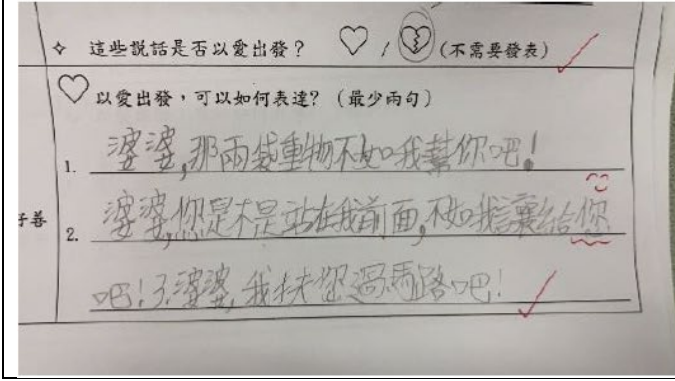 ✧ 這些說話是否以愛出發？ ♡ / 💔 (不需要發表)
♡以愛出發，可以如何表達？（最少兩句）
1. 婆婆,那兩袋重物不如我幫你吧!
子善
2. 婆婆,你是不是站在我前面,不如我讓給你
吧!3.婆婆,我扶您過馬路吧!